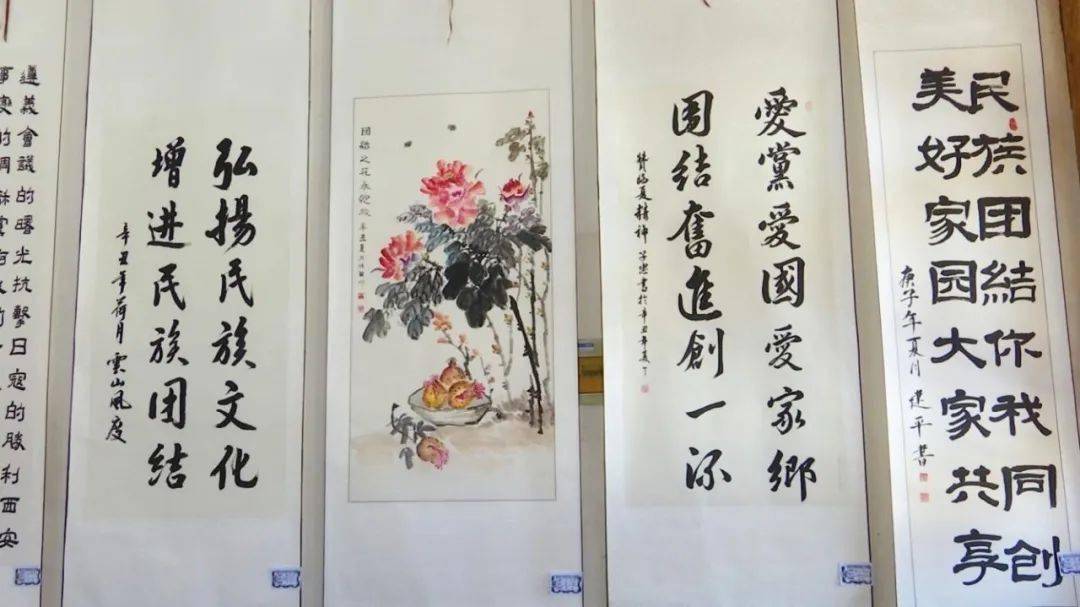 民族团結你我同创
美好家园大家共享
庚子年夏月 建平書
愛黨愛國愛家鄉
团结奮進創一流
精神
書於辛丑年夏
团結之花永绽放 辛丑夏
弘揚民族文化
增进民族团结
辛丑年荷月雲山風度
遵義會議的曙光抗擊日寇的勝利西安
事变的調解